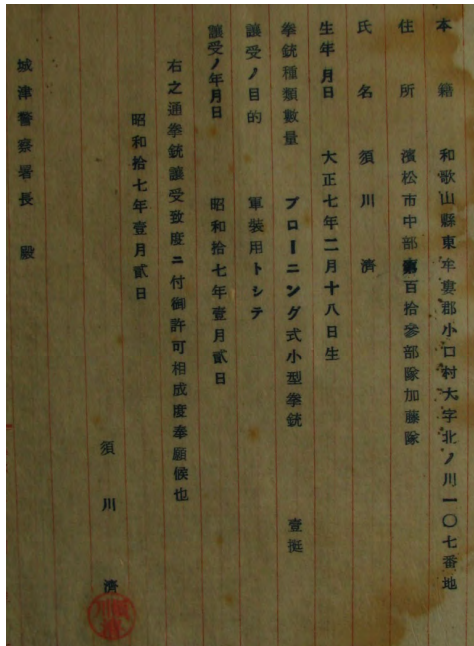 本籍 和歌山縣東牟婁郡小口村大字北ノ川一〇七番地
住所 濱松市中部第百拾參部隊加藤隊
氏名 須川濟
生年月日 大正七年二月十八日生
拳銃種類數量 ブローニング式小型拳銃 壹挺
讓受ノ目的 軍裝用トシテ
讓受ノ年月日 昭和拾七年壹月貳日
右之通拳銃讓受致度ニ付御許可相成度奉願候也
昭和拾七年壹月貳日
須川濟
城津警察署長 殿